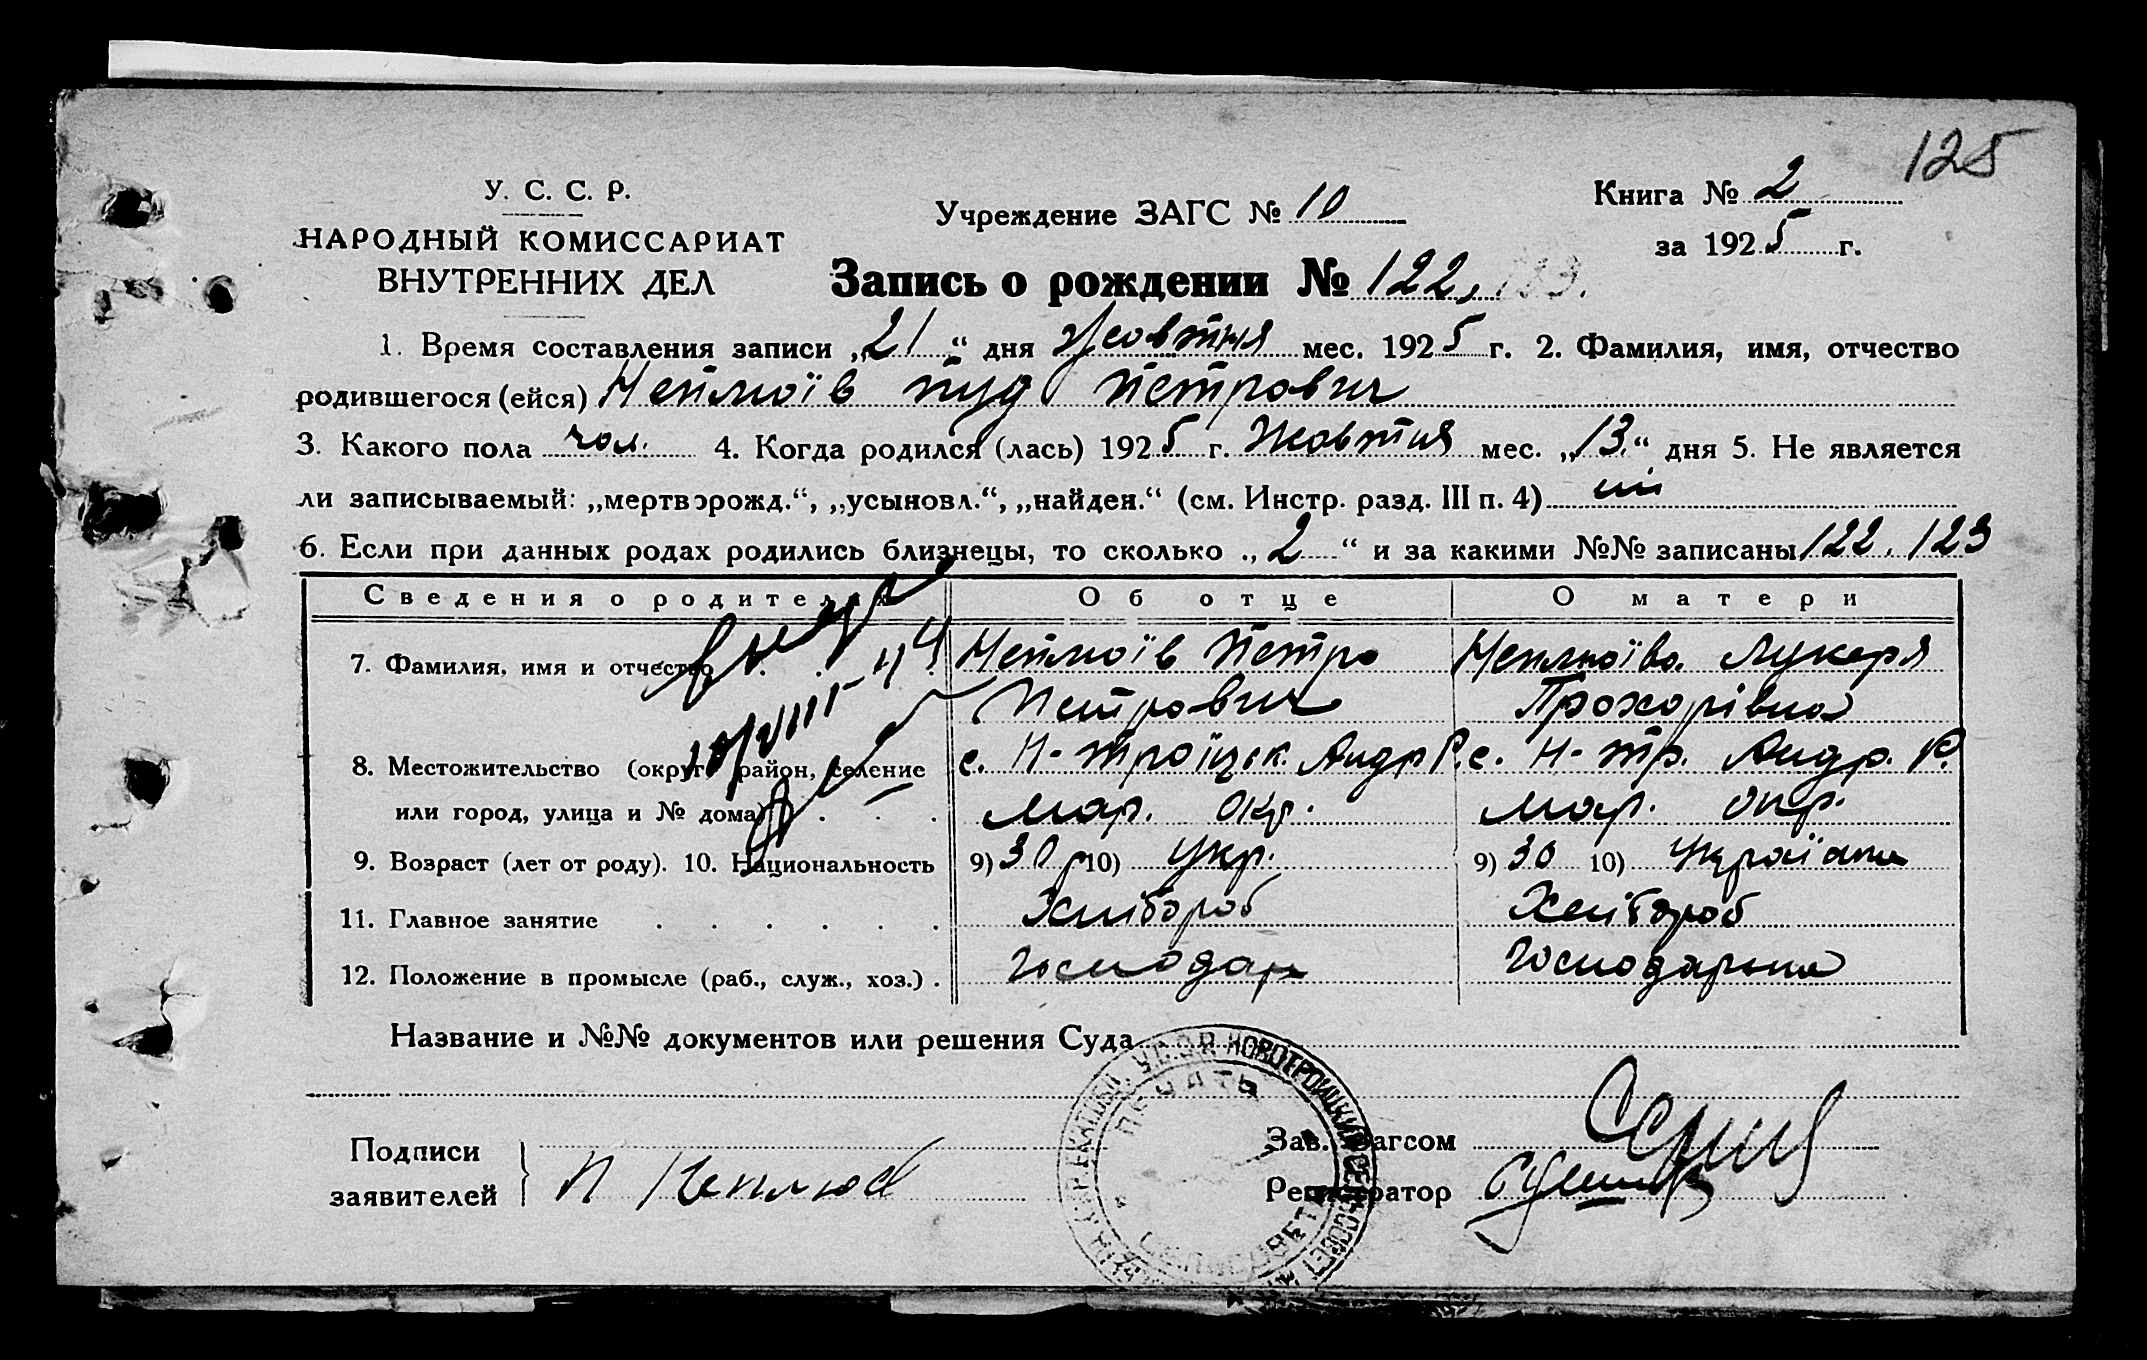 125
У. С. С. Р.
НАРОДНЫЙ КОМИССАРИАТ
ВНУТРЕННИХ ДЕЛ
Учреждение ЗАГС № 10
Книга № 2
за 1925 г.
Запись о рождении № 122, 123.
1. Время составления записи „21“ дня Жовтня мес. 1925 г. 2. Фамилия, имя, отчество
родившегося (ейся) Неплюїв Пуд Петрович
3. Какого пола чол. 4. Когда родился (лась) 1925 г. Жовтня мес. „13.“ дня 5. Не является
ли записываемый: „мертворожд.“, „усыновл.“, „найден.“ (см. Инстр. разд. III п. 4) ні
6. Если при данных родах родились близнецы, то сколько „2“ и за какими №№ записаны 122. 123
Сведения о родителях Об отце О матери
7. Фамилия, имя и отчество Неплюїв Петро Неплюїва Лукеря
Петрович Прохорівна
8. Местожительство (округ, район, селение с. Н-Троїцьк. Андр Р. с. Н-Тр. Андр. Р.
или город, улица и № дома) Мар. Окр. Мар. Окр.
9. Возраст (лет от роду). 10. Национальность 9) 30 10) Укр. 9) 30 10) Україна
11. Главное занятие Хлібороб Хлібороб
12. Положение в промысле (раб., служ., хоз.) Господар Господарьна
Название и №№ документов или решения Суда
У.С.С.Р. НОВОТРОИЦКИЙ СЕЛЬСОВЕТ
ПЕЧАТЬ
Подписи
заявителей
П Неплюев
Зав. Загсом
Регистратор